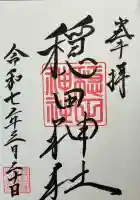 奉拝
穏田神社
令和七年三月二十日